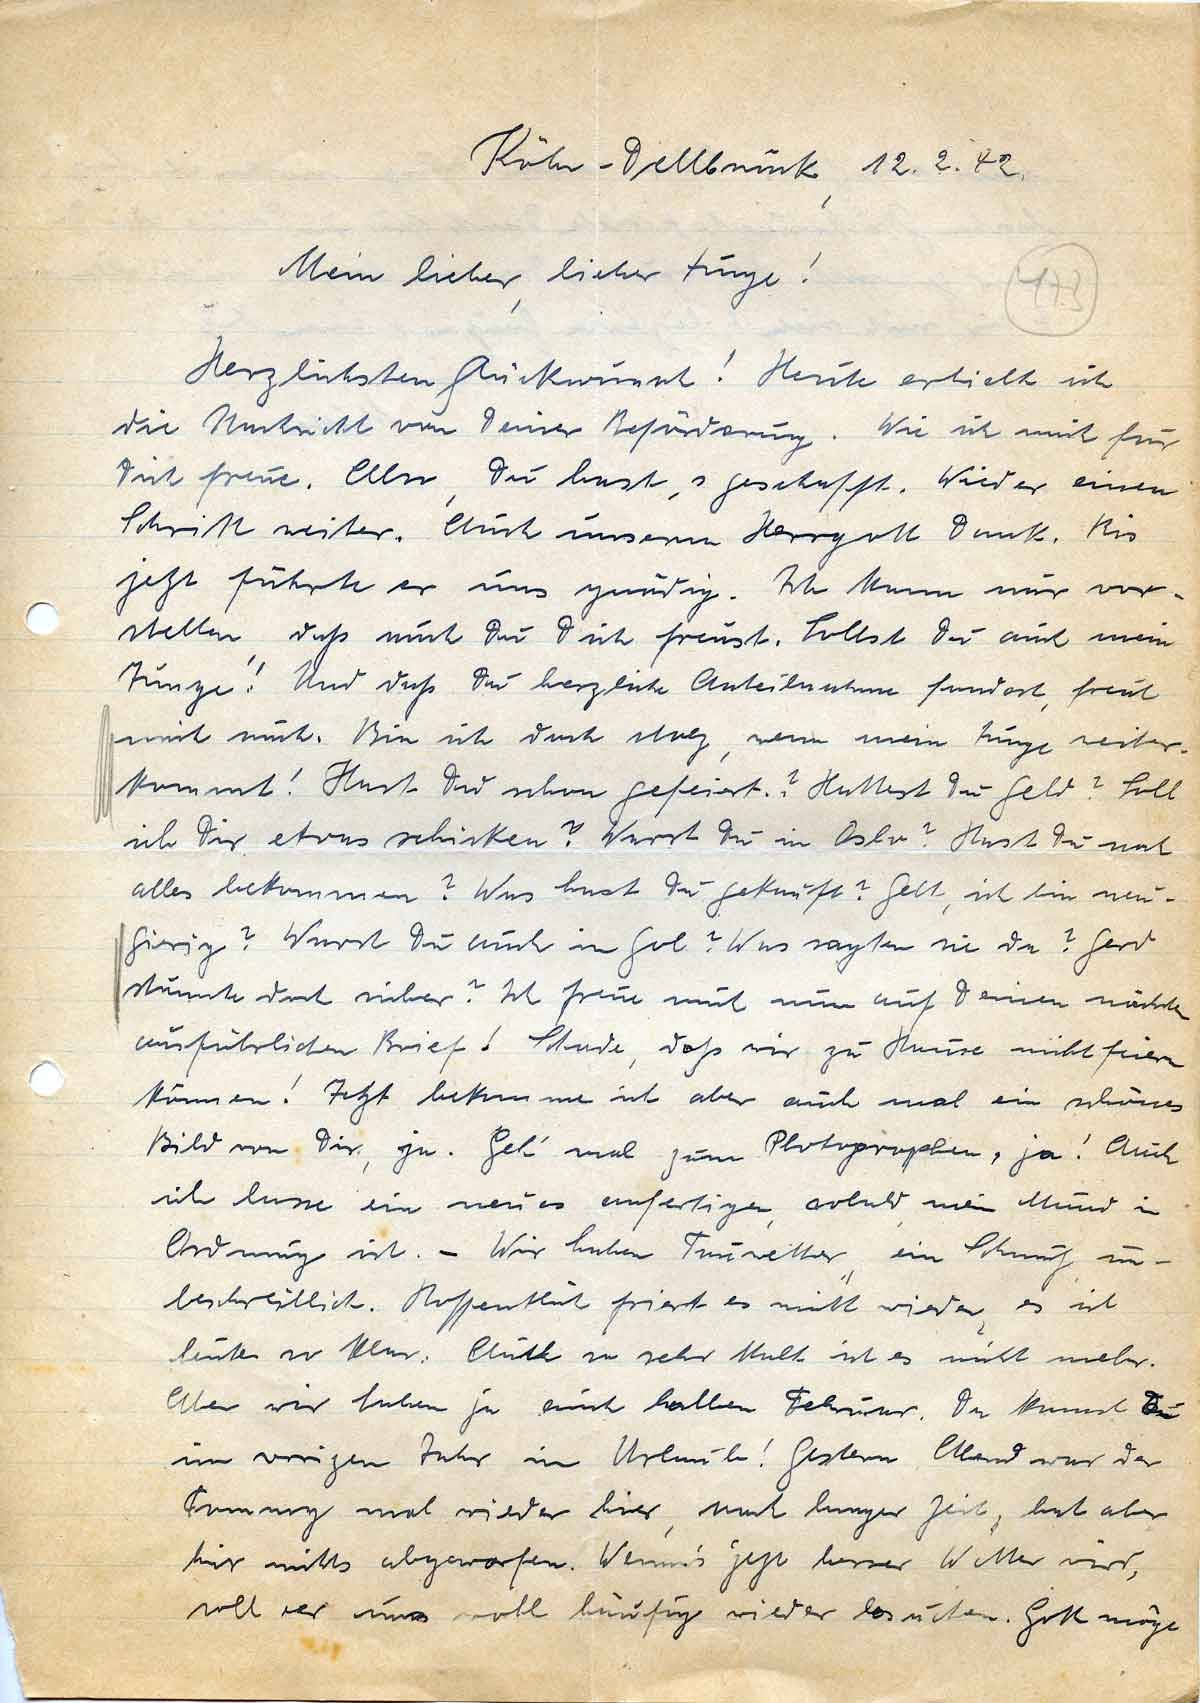 Köln-Dellbrück, 12.2.42.
173
Mein lieber, lieber Junge!
Herzlichsten Glückwunsch! Heute erhielt ich
die Nachricht von Deiner Beförderung. Wie ich mich für
Dich freue. Also, Du hast's geschafft. Wieder einen
Schritt weiter. Auch unserm Herrgott Dank. Bis
jetzt führte er uns gnädig. Ich kann mir vor-
stellen, daß auch Du Dich freust. Sollst Du auch mein
Junge! Und daß Du herzliche Anteilnahme fandest, freut
mich auch. Bin ich doch stolz, wenn mein Junge weiter-
kommt! Hast Du schon gefeiert? Hattest Du Geld? Soll
ich Dir etwas schicken? Warst Du in Oslo? Hast Du noch
alles bekommen? Was hast Du gekauft? Gelt, ich bin neu-
gierig? Warst Du auch in Gol? Was sagten sie da? Gerd
staunte doch sicher? Ich freue mich nun auf Deinen nächsten
ausführlichen Brief! Schade, daß wir zu Hause nicht feiern
können! Jetzt bekomme ich aber auch mal ein schönes
Bild von Dir, ja. Geh' mal zum Photographen, ja! Auch
ich lasse ein neues anfertigen, sobald mein Mund in
Ordnung ist. – Wir haben Tauwetter, ein Schmutz un-
beschreiblich. Hoffentlich friert es nicht wieder, es ist
heute so klar. Auch so sehr kalt ist es nicht mehr.
Aber wir haben ja auch halben Februar. Da kamst Du
im vorigen Jahr in Urlaub! Gestern Abend war der
Tommy mal wieder hier, nach langer Zeit, hat aber
hier nichts abgeworfen. Wenn's jetzt besser Wetter wird,
soll er uns wohl häufig wieder besuchen. Gott möge